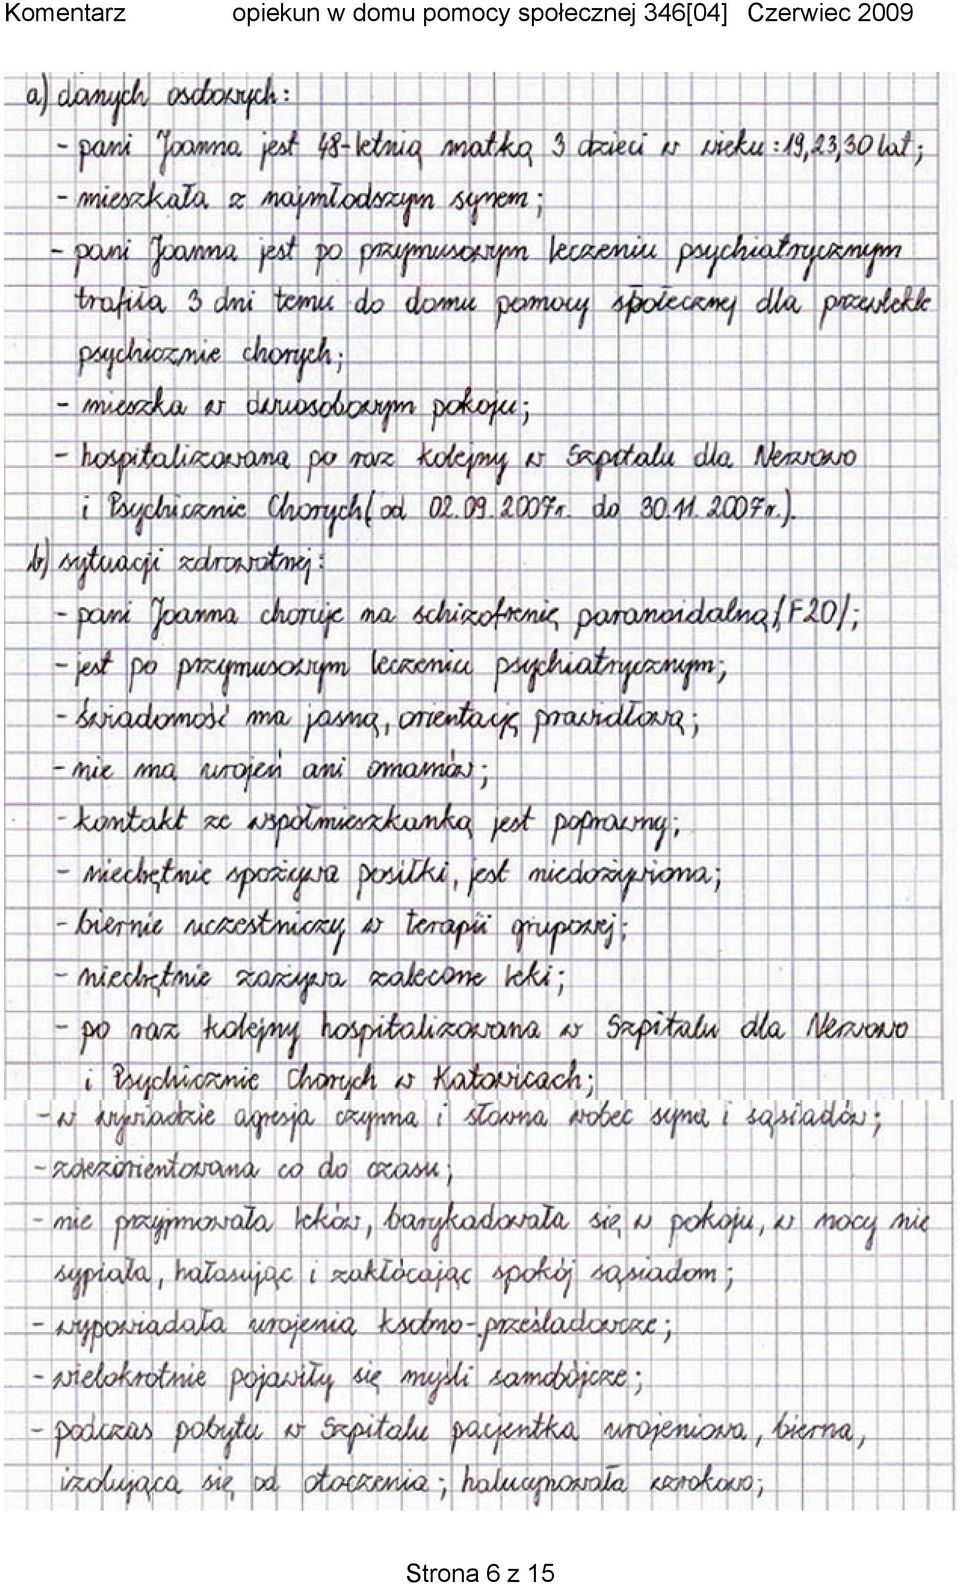 Komentarz opiekun w domu pomocy społecznej 346[04] Czerwiec 2009
a) danych osobowych:
- pani Joanna jest 48-letnią matką 3 dzieci w wieku: 19,23,30 lat;
- mieszkała z najmłodszym synem;
- pani Joanna jest po przymusowym leczeniu psychiatrycznym
trafiła 3 dni temu do domu pomocy społecznej dla przewlekle
psychicznie chorych;
- mieszka w dwuosobowym pokoju;
- hospitalizowana po raz kolejny w Szpitalu dla Nerwowo
i Psychicznie Chorych (od 02.09.2007r. do 30.11.2007r.).
b) sytuacji zdrowotnej:
- pani Joanna choruje na schizofrenię paranoidalną /F20/;
- jest po przymusowym leczeniu psychiatrycznym;
- świadomość ma jasną, orientację prawidłową;
- nie ma urojeń ani omamów;
- kontakt ze współmieszkanką jest poprawny;
- niechętnie spożywa posiłki, jest niedożywiona;
- biernie uczestniczy w terapii grupowej;
- niechętnie zażywa zalecone leki;
- po raz kolejny hospitalizowana w Szpitalu dla Nerwowo
i Psychicznie Chorych w Katowicach;
- w wywiadzie agresja czynna i słowna wobec syna i sąsiadów;
- zdezorientowana co do czasu;
- nie przyjmowała leków, barykadowała się w pokoju, w nocy nie
sypiała, hałasując i zakłócając spokój sąsiadom;
- wypowiadała urojenia ksobno-prześladowcze;
- wielokrotnie pojawiły się myśli samobójcze;
- podczas pobytu w Szpitalu pacjentka urojeniowa, bierna,
izolująca się od otoczenia; halucynowała wzrokowo;
Strona 6 z 15